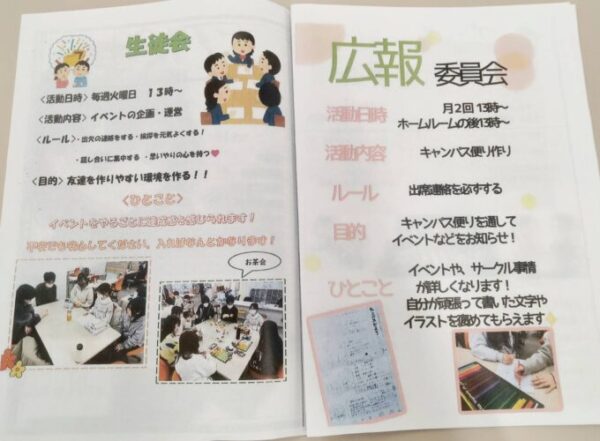 生徒会
<活動日時> 毎週火曜日 13時~
<活動内容> イベントの企画・運営
<ルール> ・出欠の連絡をする・挨拶を元気よくする!
・話し合いに集中する ・思いやりの心を持つ
<目的> 友達を作りやすい環境を作る!!
<ひとこと>
イベントをやるごとに達成感を感じられます!
不安でも安心してください、入ればなんとかなります!
お茶会
広報 委員会
活動日時
月2回 13時~
ホームルームの後13時~
活動内容 キャンパス便り作り
ルール 出席連絡を必ずする
目的
キャンパス便りを通して
イベントなどをお知らせ!
ひとこと
イベントや、サークル事情
が詳しくなります!
自分が頑張って書いた文字や
イラストを褒めてもらえます